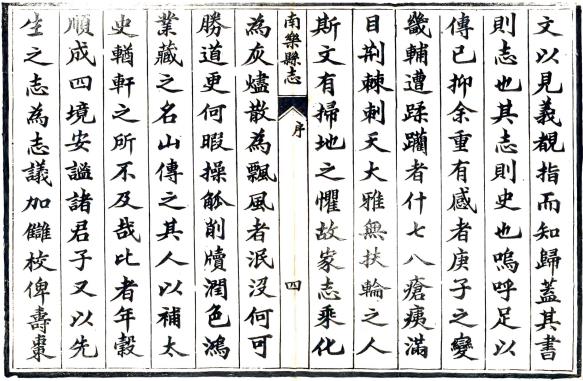 文以見義覩指而知歸蓋其書
則志也其志則史也嗚呼足以
傳已抑余重有感者庚子之變
畿輔遭蹂躪者什七八瘡痍滿
目荆棘刺天大雅無扶輪之人
斯文有掃地之懼故家志乘化
南樂縣志
序
四
為灰燼散為飄風者泯没何可
勝道更何暇操觚削牘潤色鴻
業藏之名山傳之其人以補太
史輶軒之所不及哉比者年穀
順成四境安謐諸君子又以先
生之志為志議加讎校俾壽棗